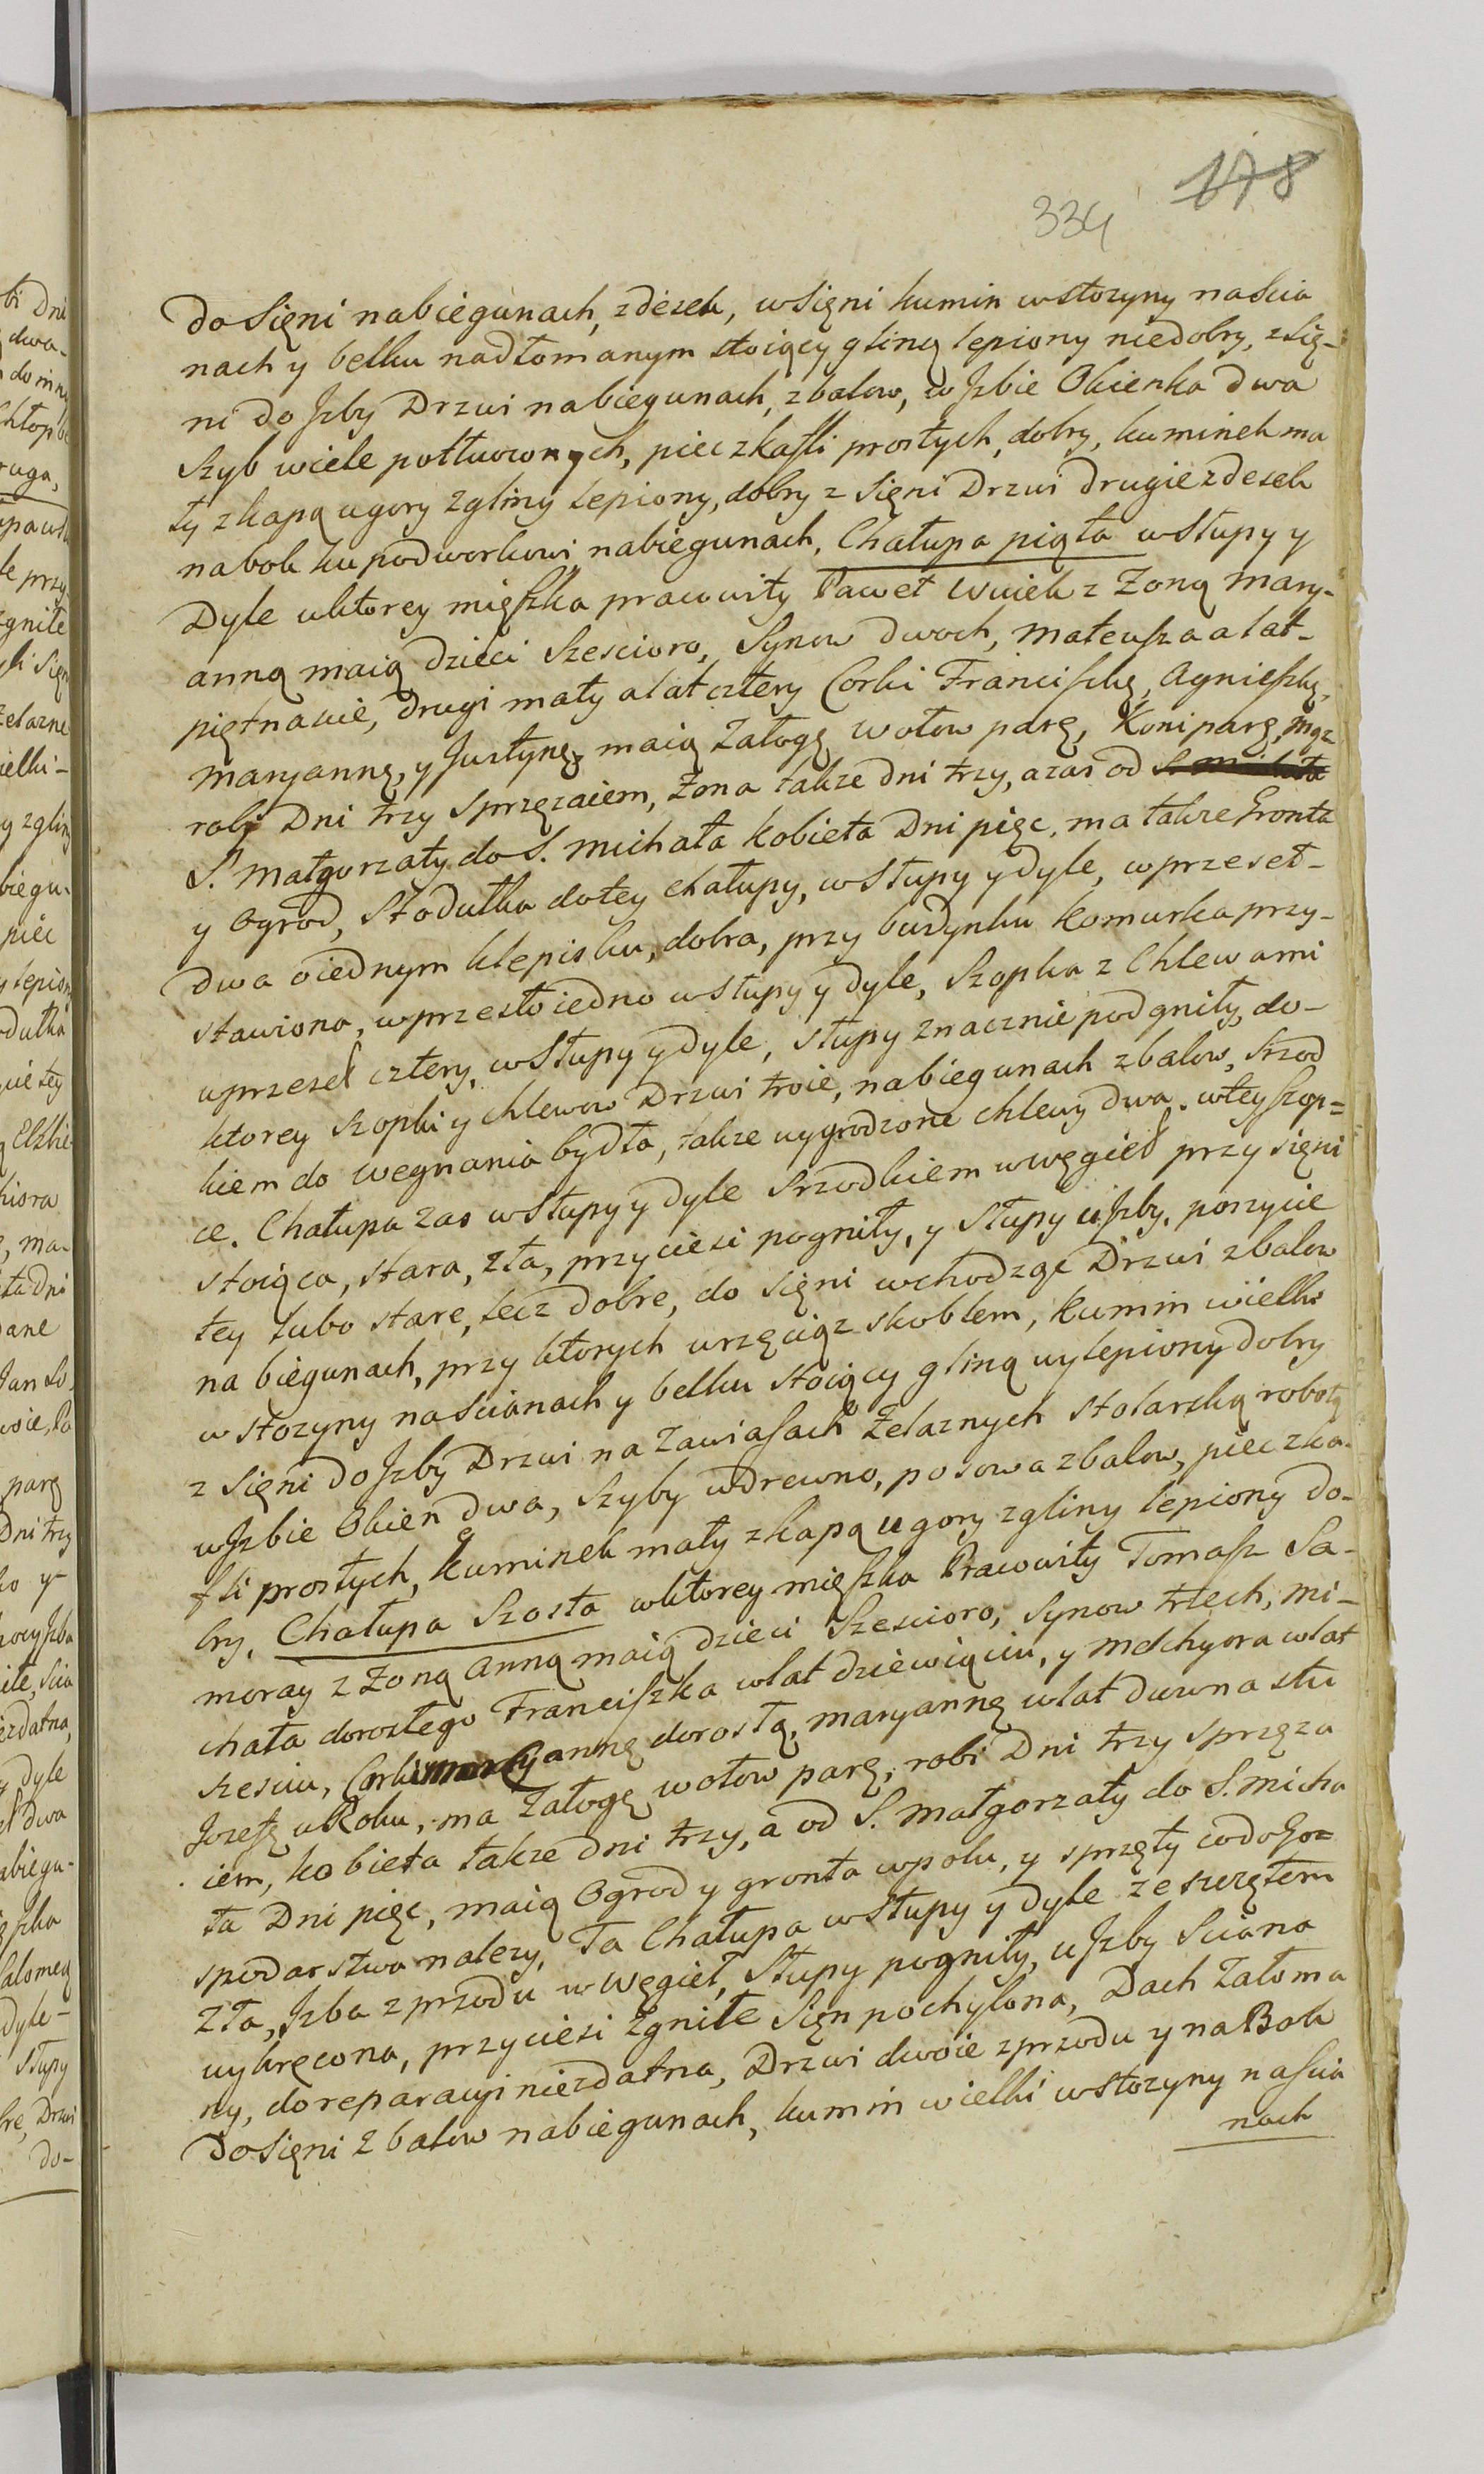 178
334
do Sięni nabiegunach, zdesek, wSięni kumin wstozyny naScia
nach y belku nadłomanym stoiący gliną lepiony niedobry, zSię-
ni do Jzby Drzwi nabiegunach, zbalow, w Jzbie Okienka dwa
Szyb wiele potłuczonych, piec zkafli prostych, dobry, kuminek ma
ły zkapą ugory zgliny lepiony, dobry z Sięni Drzwi drugie zdesek
nabok ku podworkowi nabiegunach, Chałupa piąta wSłupy y
Dyle wktorey mięszka pracowity Paweł Wnęk z Zoną Mary-
anną maią dzieci Szescioro, Synow dwoch, Mateusza a lat-
piętnascie, drugi mały a lat cztery Corki Franciszkę, Agnieszkę,
Maryannę, y Justynę, maią Załogę wołow parę, Koni parę, Mąz
robi Dni trzy sprzęzaiem, Zona takze dni trzy, azas od
S. Małgorzaty do S. Michała kobieta Dni pięc, ma takze Gronta
y Ogrod, Stodułka dotey chałupy, wSłupy y dyle, wprzeseł-
dwa oiednym klepisku, dobra, przy budynku Komurka przy-
stawiona, wprzesło iedno wSłupy y dyle, Szopka z Chlewami
wprzeseł cztery, wSłupy y dyle, słupy znacznie podgniły, do-
ktorey szopki y chlewow Drzwi troie, nabiegunach zbalow, Srzod
kiem do wegnania bydła, takze wygrodzone chlewy dwa. wtey szop=
ce. Chałupa zas wSłupy y dyle Srzodkiem wwęgieł przy sięni
stoiąca, stara, zła, przyciesi pogniły, y Słupy u Jzby, poszycie
tey lubo stare, lecz dobre, do Sięni wchodząc Drzwi zbalow
na biegunach, przy ktorych wrzęciąz skoblem, Kumin wielki
wstozyny naScianach y belku stoiący gliną wylepiony dobry
z Sięni do Jzby Drzwi na Zawiasach Zelaznych stolarską robotą
wJzbie Okien dwa, Szyby wdrewno, posowa zbalow, piec zka-
fli prostych, kuminek mały zkapą ugory zgliny lepiony do-
bry, Chałupa Szosta wktorey mięszka Pracowity Tomasz Sa-
moray z Zoną Anną maią dzieci Szescioro, Synow trzech, Mi-
chała dorosłego Franciszka wlat dziewiąciu, y Melchyora wlat
szesciu, Corki annę dorosłą, maryannę wlat dwunastu
Jozefę wRoku, ma Załogę wołow parę, robi Dni trzy sprzęza
iem, kobieta takze dni trzy, a od S. Małgorzaty do S. Micha
ła Dni pięc, maią Ogrod y gronta wpolu, y sprzęty codo Go=
spodarstwa nalezy, Ta Chałupa wSłupy y dyle ze szczętem
Zła, Jzba zprzodu wWęgieł, Słupy pogniły, uJzby Sciana
wykręcona, przyciesi Zgniłe Sięn pochylona, Dach Załoma
ny, do reparacyi niezdatna, Drzwi dwoie zprzodu y naBok
do Sięni zbalow nabiegunach, kumin wielki wstozyny naScia
nach